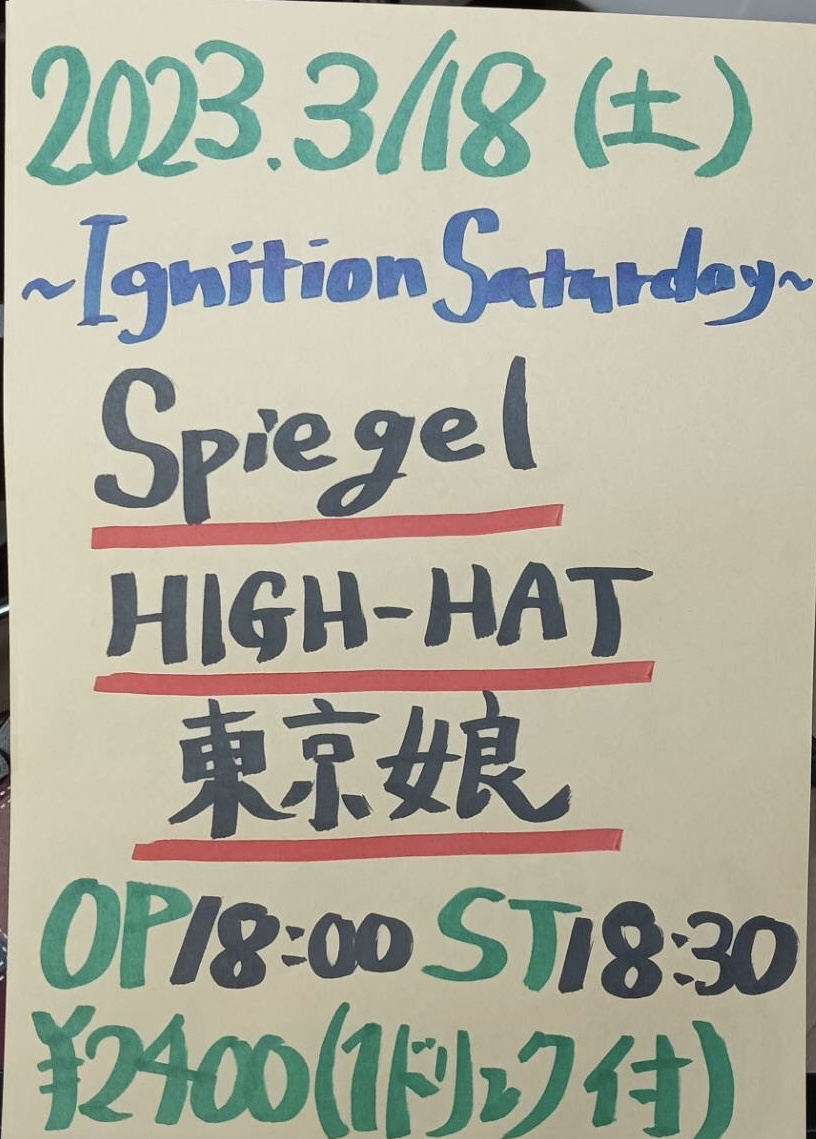 2023.3/18(土)
~Ignition Saturday~
Spiegel
HIGH-HAT
東京娘
OP18:00 ST18:30
¥2400(1ドリンク付)